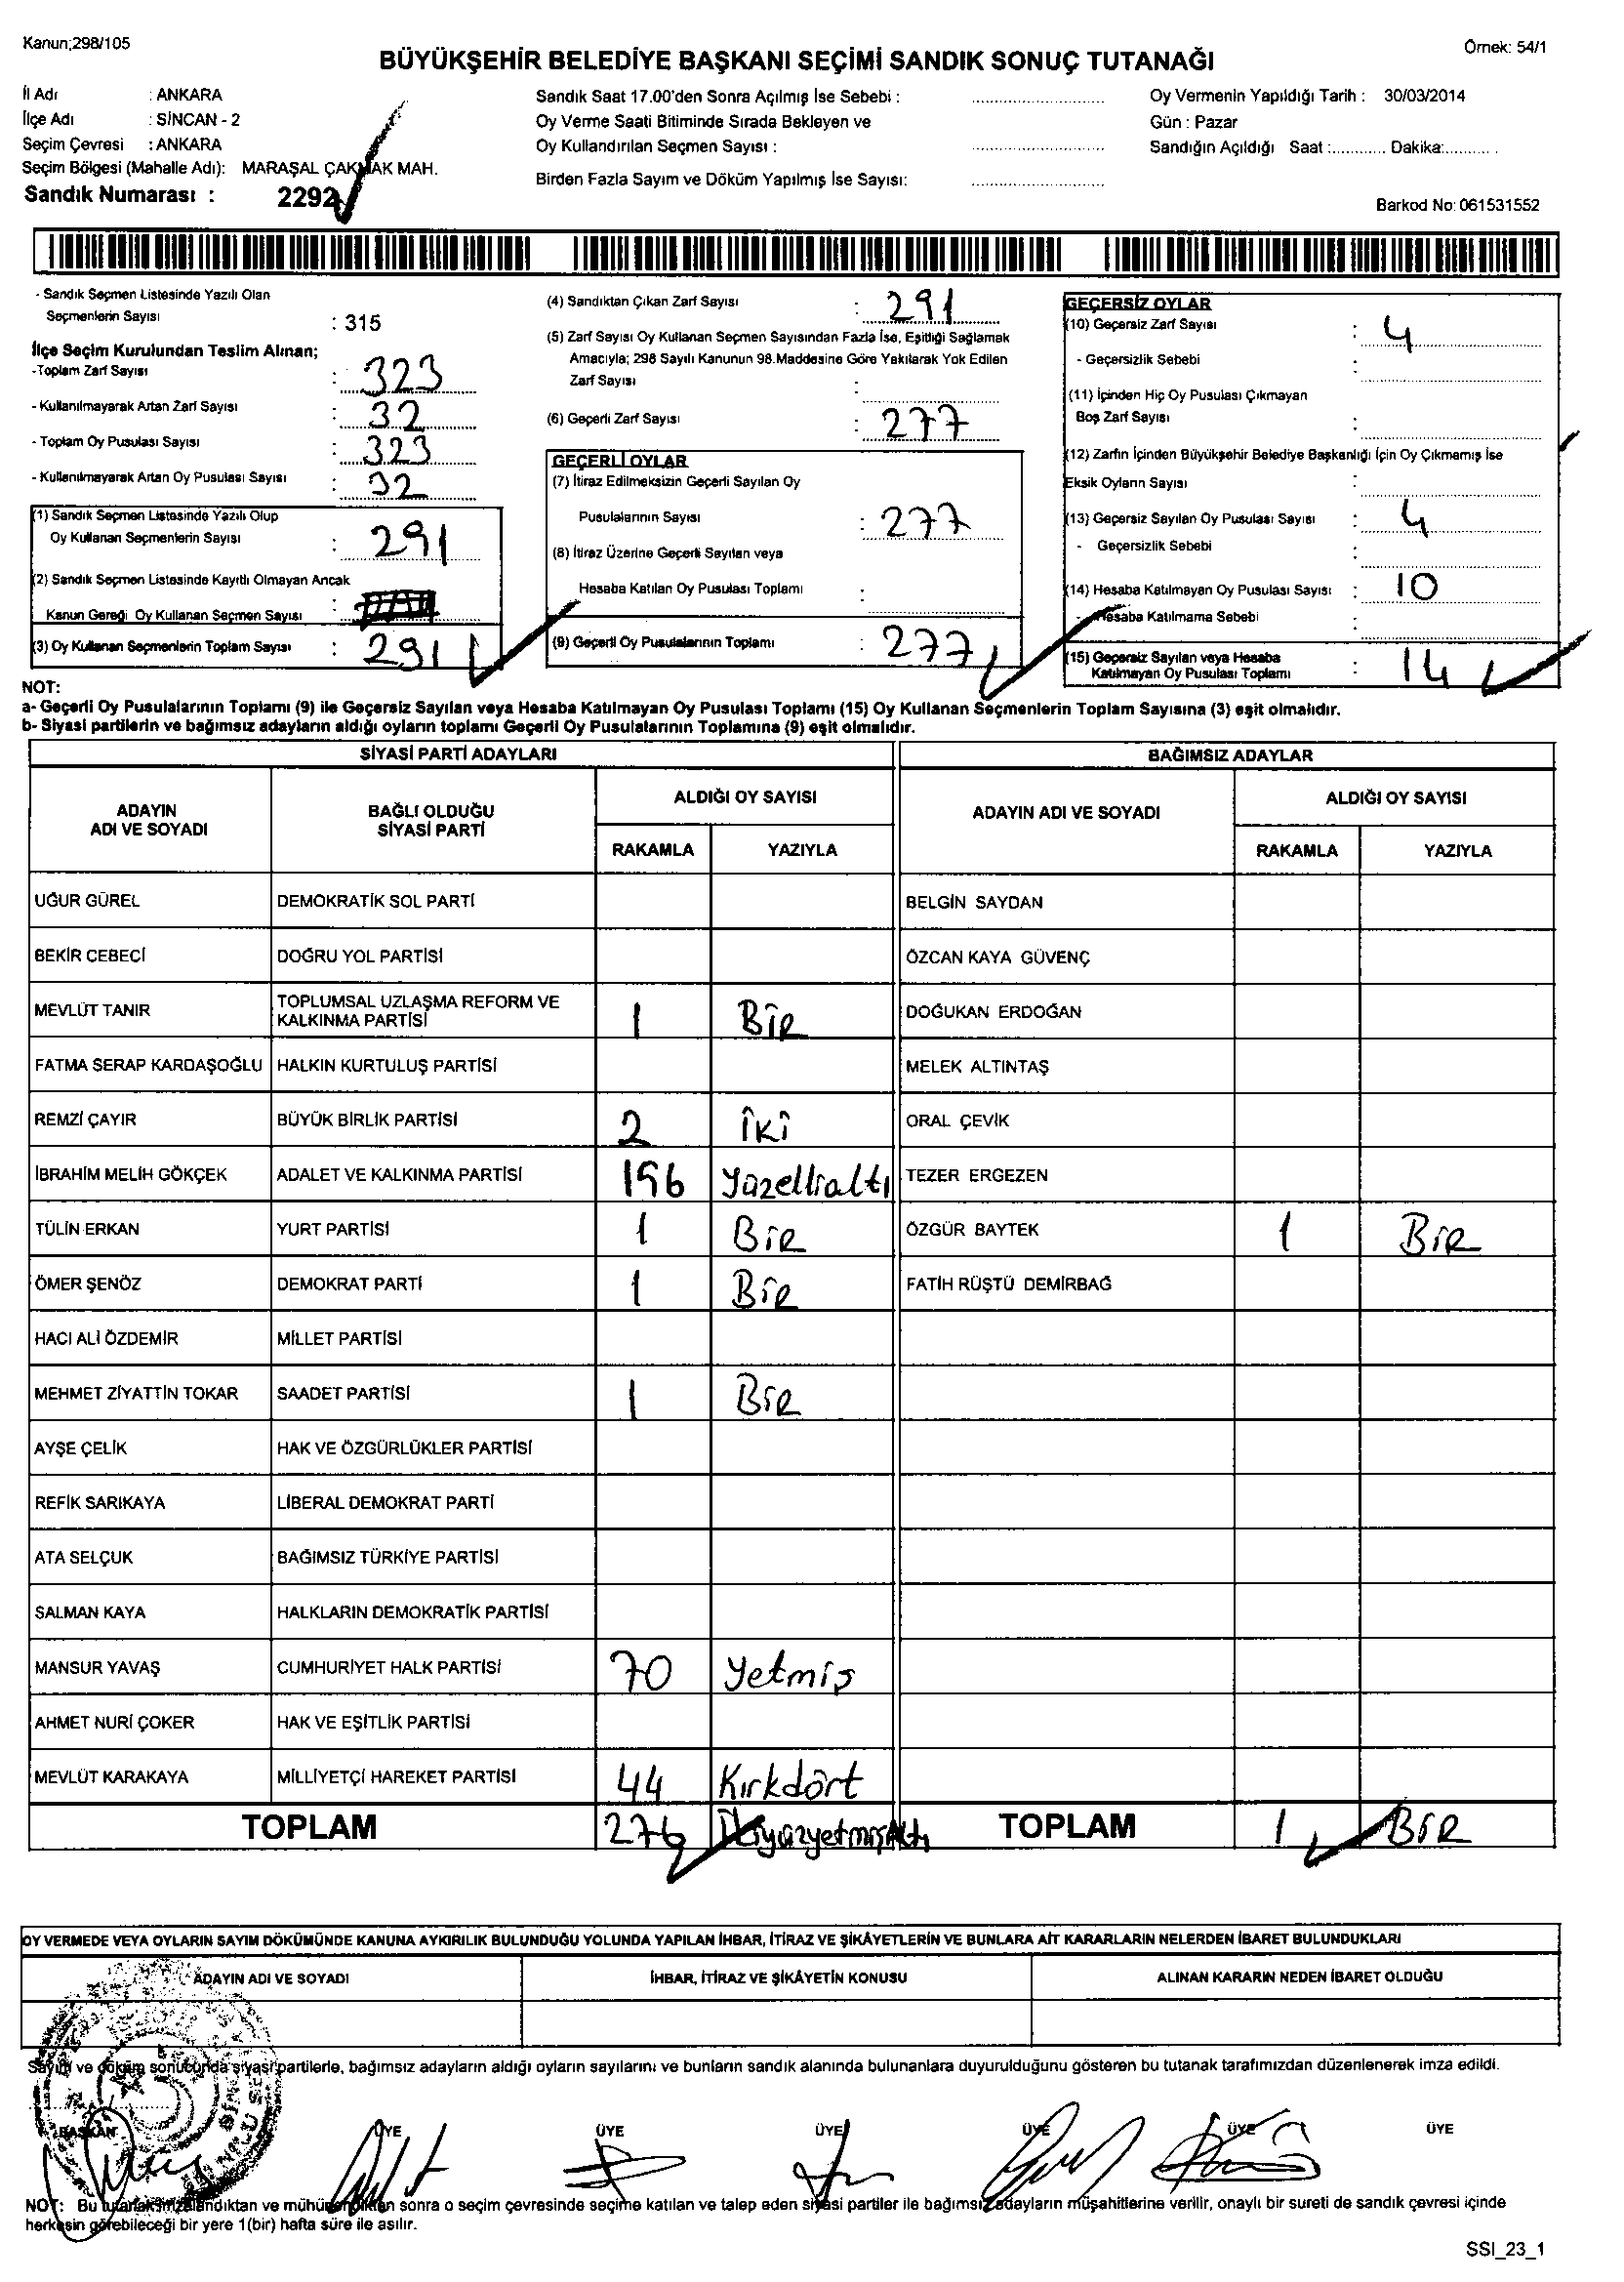 Kanun;298/105
Örnek: 54/1
BÜYÜKŞEHİR BELEDİYE BAŞKANI SEÇİMİ SANDIK SONUÇ TUTANAĞI
İl Adı : ANKARA
İlçe Adı : SİNCAN - 2
Seçim Çevresi : ANKARA
Seçim Bölgesi (Mahalle Adı): MARAŞAL ÇAKMAK MAH.
Sandık Numarası : 2292
Sandık Saat 17.00'den Sonra Açılmış İse Sebebi :
Oy Verme Saati Bitiminde Sırada Bekleyen ve
Oy Kullandırılan Seçmen Sayısı :
Birden Fazla Sayım ve Döküm Yapılmış İse Sayısı:
Oy Vermenin Yapıldığı Tarih : 30/03/2014
Gün : Pazar
Sandığın Açıldığı Saat :............ Dakika:............
Barkod No: 061531552
- Sandık Seçmen Listesinde Yazılı Olan
Seçmenlerin Sayısı : 315
İlçe Seçim Kurulundan Teslim Alınan;
-Toplam Zarf Sayısı : 323
- Kullanılmayarak Artan Zarf Sayısı : 32
- Toplam Oy Pusulası Sayısı : 323
- Kullanılmayarak Artan Oy Pusulası Sayısı : 32
(1) Sandık Seçmen Listesinde Yazılı Olup
Oy Kullanan Seçmenlerin Sayısı : 291
(2) Sandık Seçmen Listesinde Kayıtlı Olmayan Ancak
Kanun Gereği Oy Kullanan Seçmen Sayısı :
(3) Oy Kullanan Seçmenlerin Toplam Sayısı : 291
(4) Sandıktan Çıkan Zarf Sayısı : 291
(5) Zarf Sayısı Oy Kullanan Seçmen Sayısından Fazla İse, Eşitliği Sağlamak
Amacıyla; 298 Sayılı Kanunun 98.Maddesine Göre Yakılarak Yok Edilen
Zarf Sayısı :
(6) Geçerli Zarf Sayısı : 277
GEÇERLİ OYLAR
(7) İtiraz Edilmeksizin Geçerli Sayılan Oy
Pusulalarının Sayısı : 277
(8) İtiraz Üzerine Geçerli Sayılan veya
Hesaba Katılan Oy Pusulası Toplamı :
(9) Geçerli Oy Pusulalarının Toplamı : 277
GEÇERSİZ OYLAR
(10) Geçersiz Zarf Sayısı : 4
- Geçersizlik Sebebi :
(11) İçinden Hiç Oy Pusulası Çıkmayan
Boş Zarf Sayısı :
(12) Zarfın İçinden Büyükşehir Belediye Başkanlığı İçin Oy Çıkmamış İse
Eksik Oyların Sayısı :
(13) Geçersiz Sayılan Oy Pusulası Sayısı : 4
- Geçersizlik Sebebi :
(14) Hesaba Katılmayan Oy Pusulası Sayısı : 10
- Hesaba Katılmama Sebebi :
(15) Geçersiz Sayılan veya Hesaba
Katılmayan Oy Pusulası Toplamı : 14
NOT:
a- Geçerli Oy Pusulalarının Toplamı (9) ile Geçersiz Sayılan veya Hesaba Katılmayan Oy Pusulası Toplamı (15) Oy Kullanan Seçmenlerin Toplam Sayısına (3) eşit olmalıdır.
b- Siyasi partilerin ve bağımsız adayların aldığı oyların toplamı Geçerli Oy Pusulalarının Toplamına (9) eşit olmalıdır.
SİYASİ PARTİ ADAYLARI BAĞIMSIZ ADAYLAR
ADAYIN ADI VE SOYADI BAĞLI OLDUĞU SİYASİ PARTİ ALDIĞI OY SAYISI ADAYIN ADI VE SOYADI ALDIĞI OY SAYISI
RAKAMLA YAZIYLA RAKAMLA YAZIYLA
UĞUR GÜREL DEMOKRATİK SOL PARTİ BELGİN SAYDAN
BEKİR CEBECİ DOĞRU YOL PARTİSİ ÖZCAN KAYA GÜVENÇ
MEVLÜT TANIR TOPLUMSAL UZLAŞMA REFORM VE KALKINMA PARTİSİ 1 Bir DOĞUKAN ERDOĞAN
FATMA SERAP KARDAŞOĞLU HALKIN KURTULUŞ PARTİSİ MELEK ALTINTAŞ
REMZİ ÇAYIR BÜYÜK BİRLİK PARTİSİ 2 İki ORAL ÇEVİK
İBRAHİM MELİH GÖKÇEK ADALET VE KALKINMA PARTİSİ 156 Yüzellialtı TEZER ERGEZEN
TÜLİN ERKAN YURT PARTİSİ 1 Bir ÖZGÜR BAYTEK 1 Bir
ÖMER ŞENÖZ DEMOKRAT PARTİ 1 Bir FATİH RÜŞTÜ DEMİRBAĞ
HACI ALİ ÖZDEMİR MİLLET PARTİSİ
MEHMET ZİYATTİN TOKAR SAADET PARTİSİ 1 Bir
AYŞE ÇELİK HAK VE ÖZGÜRLÜKLER PARTİSİ
REFİK SARIKAYA LİBERAL DEMOKRAT PARTİ
ATA SELÇUK BAĞIMSIZ TÜRKİYE PARTİSİ
SALMAN KAYA HALKLARIN DEMOKRATİK PARTİSİ
MANSUR YAVAŞ CUMHURİYET HALK PARTİSİ 70 Yetmiş
AHMET NURİ ÇOKER HAK VE EŞİTLİK PARTİSİ
MEVLÜT KARAKAYA MİLLİYETÇİ HAREKET PARTİSİ 44 Kırkdört
TOPLAM 276 İkiyüzyetmişaltı TOPLAM 1 Bir
OY VERMEDE VEYA OYLARIN SAYIM DÖKÜMÜNDE KANUNA AYKIRILIK BULUNDUĞU YOLUNDA YAPILAN İHBAR, İTİRAZ VE ŞİKÂYETLERİN VE BUNLARA AİT KARARLARIN NELERDEN İBARET BULUNDUKLARI
ADAYIN ADI VE SOYADI İHBAR, İTİRAZ VE ŞİKÂYETİN KONUSU ALINAN KARARIN NEDEN İBARET OLDUĞU
Sayım ve döküm sonucunda siyasi partilerle, bağımsız adayların aldığı oyların sayılarını ve bunların sandık alanında bulunanlara duyurulduğunu gösteren bu tutanak tarafımızdan düzenlenerek imza edildi.
BAŞKAN ÜYE ÜYE ÜYE ÜYE ÜYE ÜYE
NOT: Bu tutanak imzalandıktan ve mühürlendikten sonra o seçim çevresinde seçime katılan ve talep eden siyasi partiler ile bağımsız adayların müşahitlerine verilir, onaylı bir sureti de sandık çevresi içinde
herkesin görebileceği bir yere 1(bir) hafta süre ile asılır.
SSI_23_1